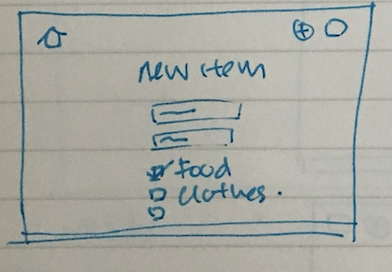 new item
food
clothes.